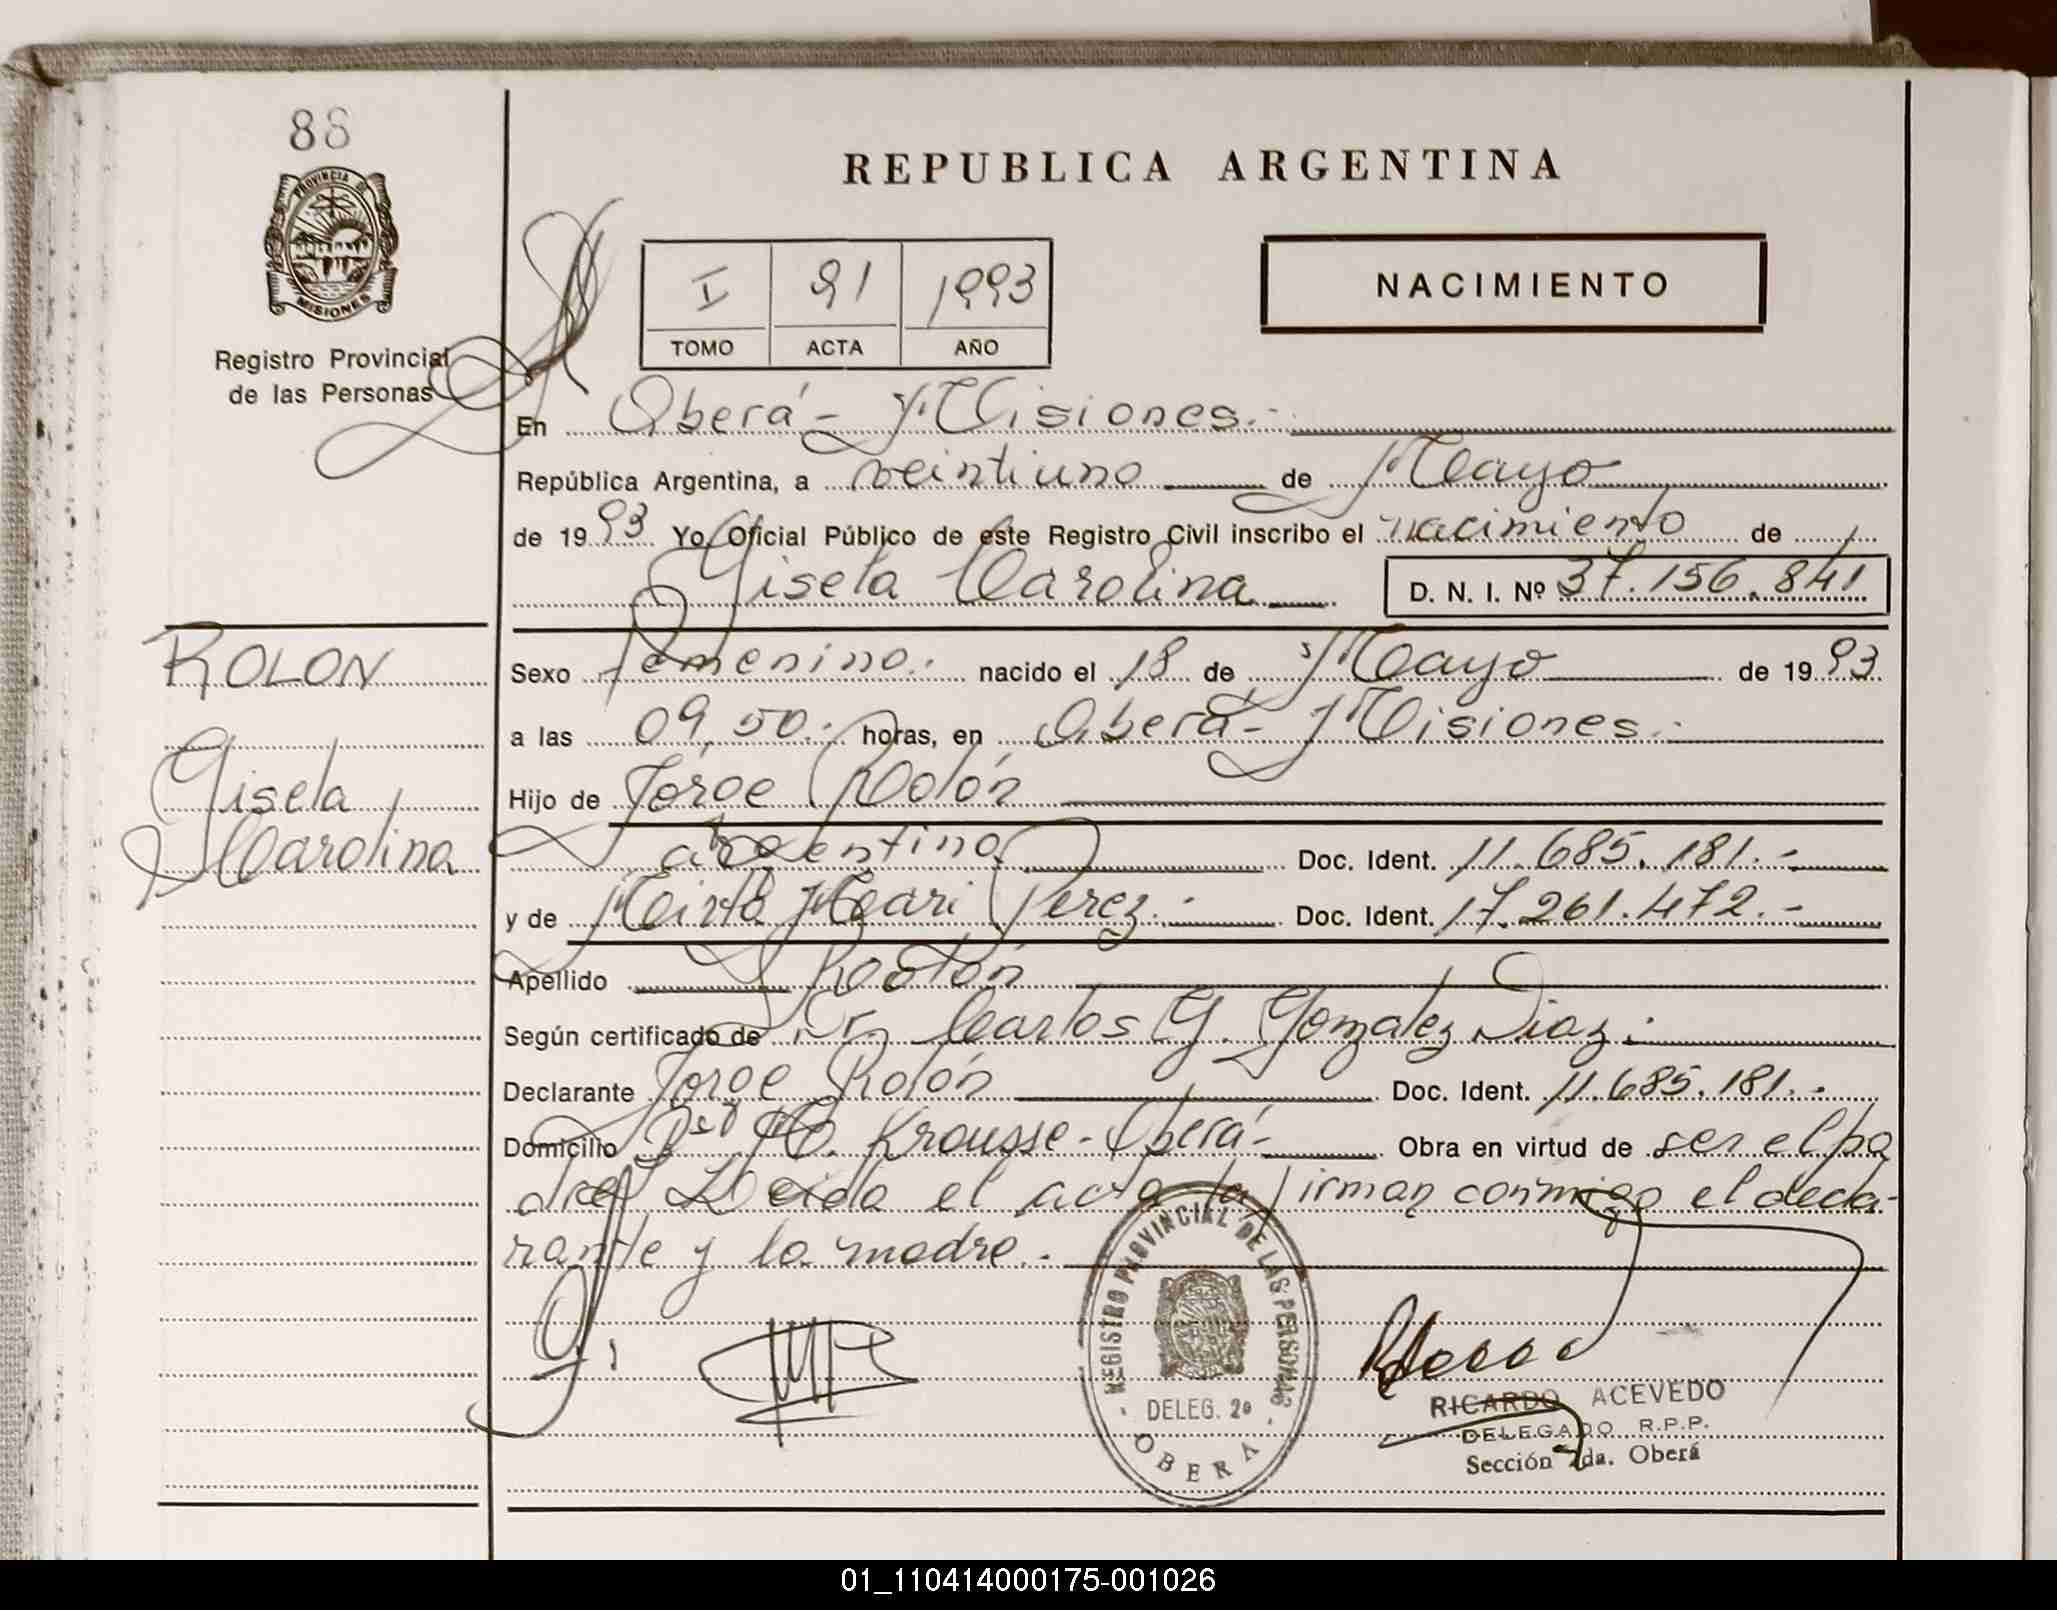 88
PROVINCIA DE
MISIONES
Registro Provincial
de las Personas
REPUBLICA ARGENTINA
I 91 1993
TOMO ACTA AÑO
NACIMIENTO
En Oberá - Misiones.-
República Argentina, a veintiuno de Mayo
de 1993 Yo Oficial Público de este Registro Civil inscribo el nacimiento de
Gisela Carolina D. N. I. Nº 37.156.841
ROLON
Gisela
Carolina
Sexo femenino. nacido el 18 de Mayo de 1993
a las 09,50. horas, en Oberá - Misiones.-
Hijo de Jorge Rolón
argentino Doc. Ident. 11.685.181.-
y de Mirta Mari Perez.- Doc. Ident. 17.261.472.-
Apellido Rolón
Según certificado de Dr. Carlos G. Gonzalez Diaz.
Declarante Jorge Rolón Doc. Ident. 11.685.181.-
Domicilio Krausse - Oberá - Obra en virtud de ser el pa
dre Leida el acta la firman conmigo el decla-
rante y la madre.-
REGISTRO PROVINCIAL DE LAS PERSONAS
DELEG. 2ª
OBERA
RICARDO ACEVEDO
DELEGADO R.P.P.
Sección 2da. Oberá
01_110414000175-001026